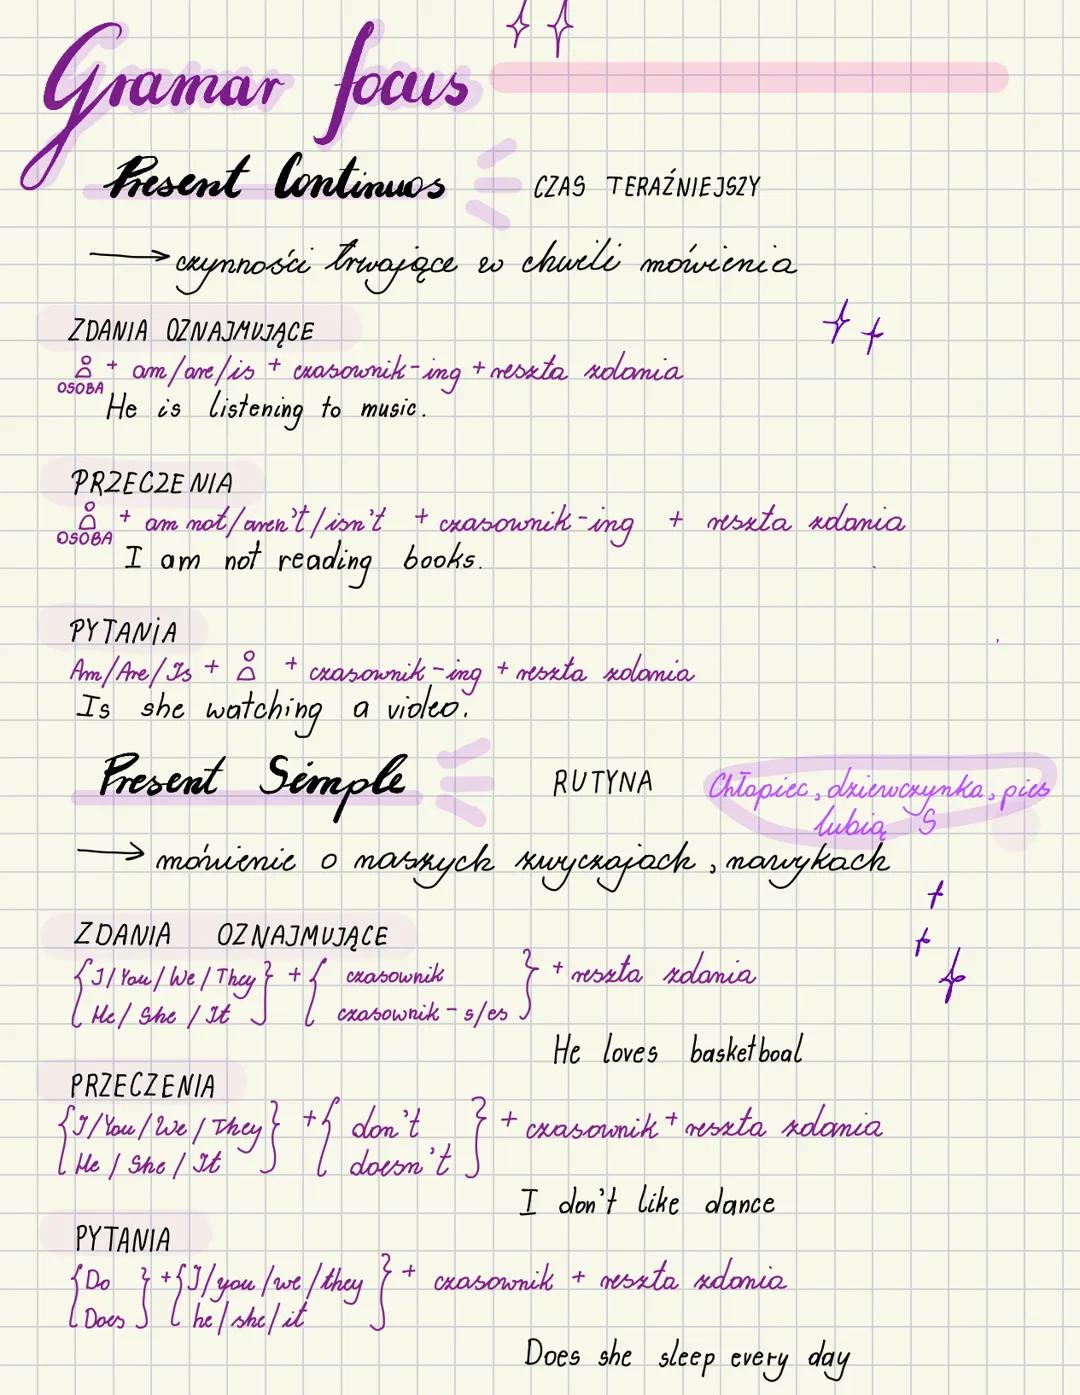 Gramar focus
Present Continuos CZAS TERAŹNIEJSZY
czynności trwające w chwili mówienia
ZDANIA OZNAJMUJĄCE
+ am/are/is + czasownik-ing + reszta zdania
OSOBA
He is listening to music.
PRZECZENIA
+ am not/aren't/isn't + czasownik-ing + reszta zdania
OSOBA
I am not reading books.
PYTANIA
Am/Are/Is + + czasownik-ing + reszta zdania
Is she watching a video.
Present Simple RUTYNA
Chłopiec, dziewczynka, pies
lubią S
mówienie o naszych zwyczajach, nawykach
ZDANIA OZNAJMUJĄCE
{I/You/We/They} + { czasownik } + reszta zdania
He/She/It czasownik-s/es
He loves basketboal
PRZECZENIA
{I/You/We/They} + { don't } + czasownik + reszta zdania
He/She/It doesn't
I don't like dance
PYTANIA
{Do } + {I/you/we/they } + czasownik + reszta zdania
Does he/she/it
Does she sleep every day